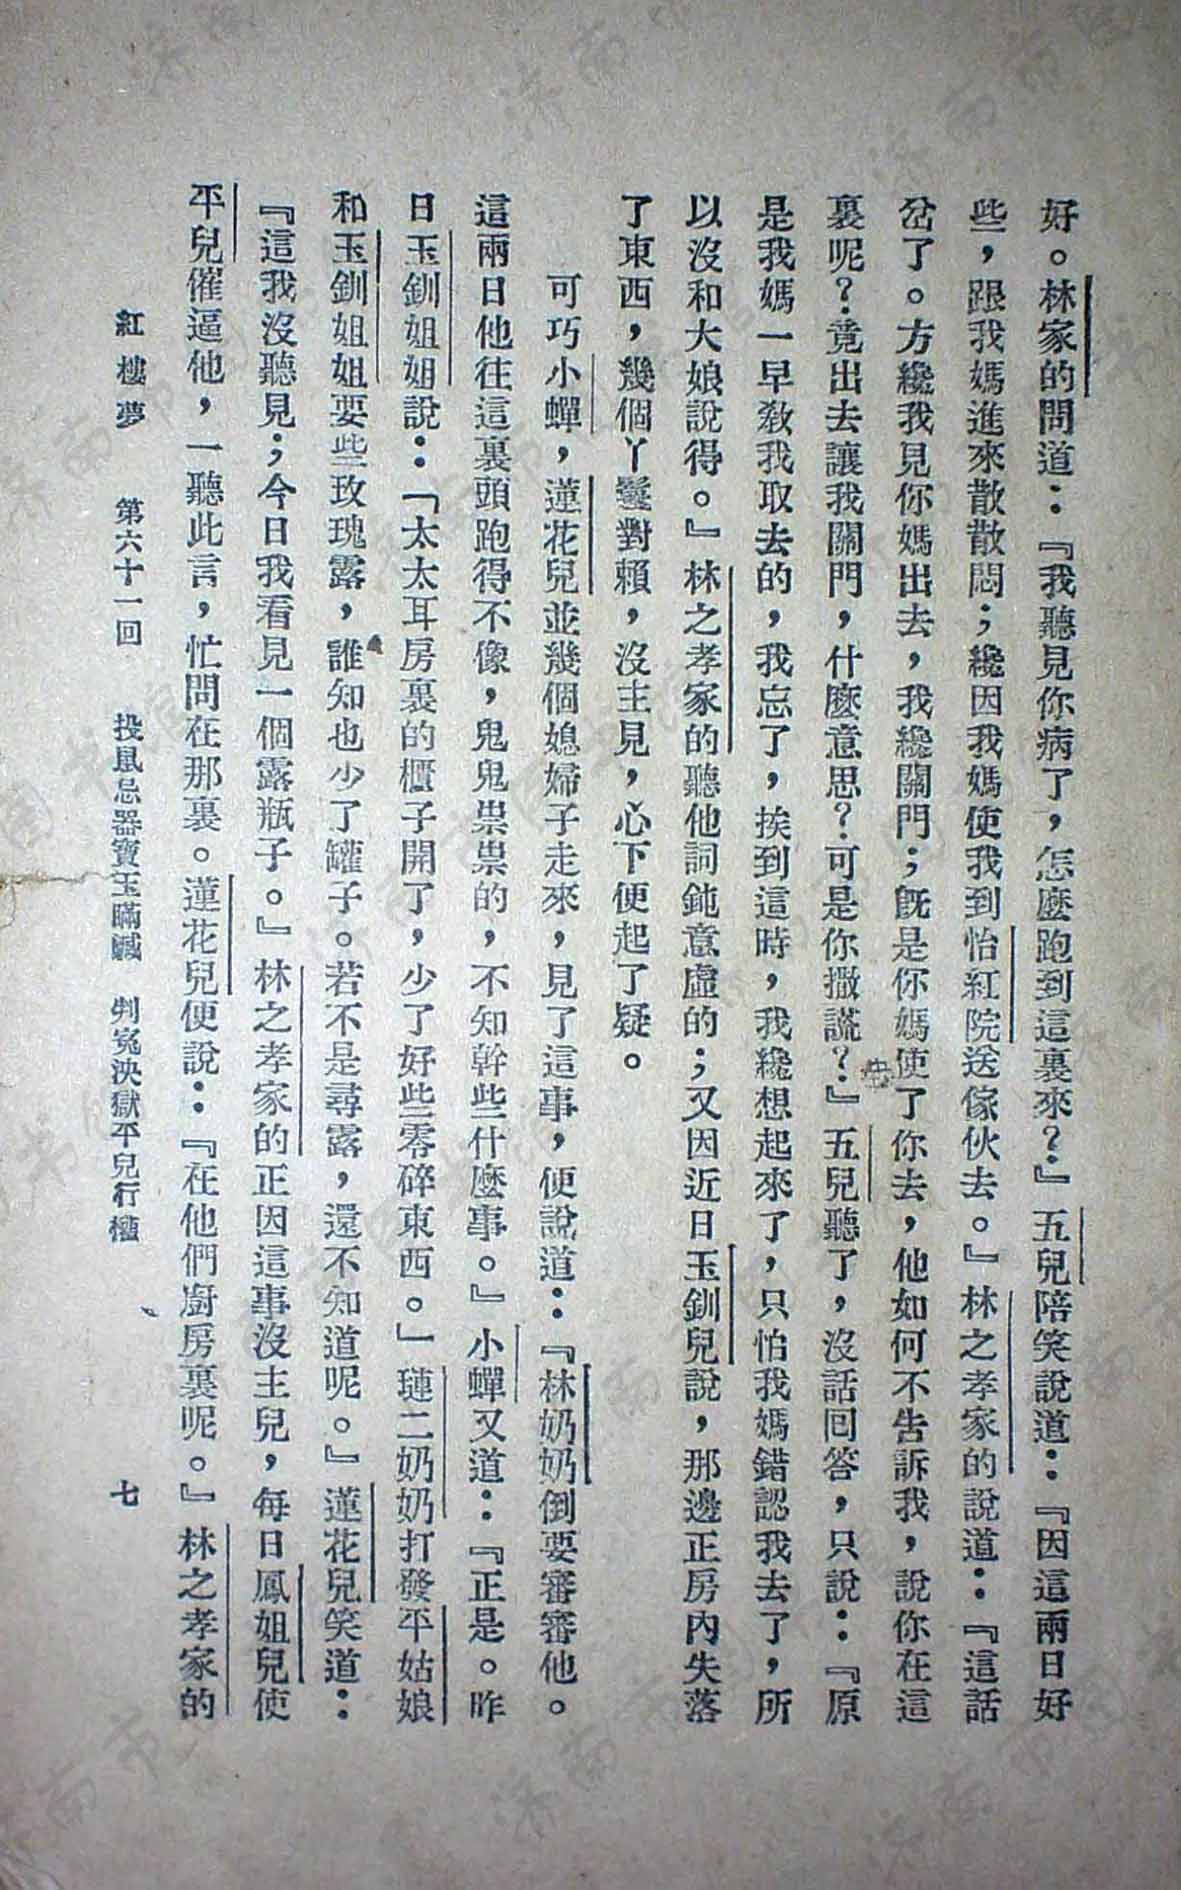 好。林家的問道：『我聽見你病了，怎麼跑到這裏來？』五兒陪笑說道：『因這兩日好
些，跟我媽進來散散悶；纔因我媽使我到怡紅院送傢伙去。』林之孝家的說道：『這話
岔了。方纔我見你媽出去，我纔關門；旣是你媽使了你去，他如何不告訴我，說你在這
裏呢？竟出去讓我關門，什麼意思？可是你撒謊？』五兒聽了，沒話回答，只說：『原
是我媽一早敎我取去的，我忘了，挨到這時，我纔想起來了，只怕我媽錯認我去了，所
以沒和大娘說得。』林之孝家的聽他詞鈍意虛的；又因近日玉釧兒說，那邊正房內失落
了東西，幾個丫鬟對賴，沒主見，心下便起了疑。
可巧小蟬，蓮花兒並幾個媳婦子走來，見了這事，便說道：『林奶奶倒要審審他。
這兩日他往這裏頭跑得不像，鬼鬼祟祟的，不知幹些什麼事。』小蟬又道：『正是。昨
日玉釧姐姐說：「太太耳房裏的櫃子開了，少了好些零碎東西。」璉二奶奶打發平姑娘
和玉釧姐姐要些玫瑰露，誰知也少了罐子。若不是尋露，還不知道呢。』蓮花兒笑道：
『這我沒聽見；今日我看見一個露瓶子。』林之孝家的正因這事沒主兒，每日鳳姐兒使
平兒催逼他，一聽此言，忙問在那裏。蓮花兒便說：『在他們廚房裏呢。』林之孝家的
紅樓夢 第六十一回 投鼠忌器寶玉瞞贓 判冤決獄平兒行權 七